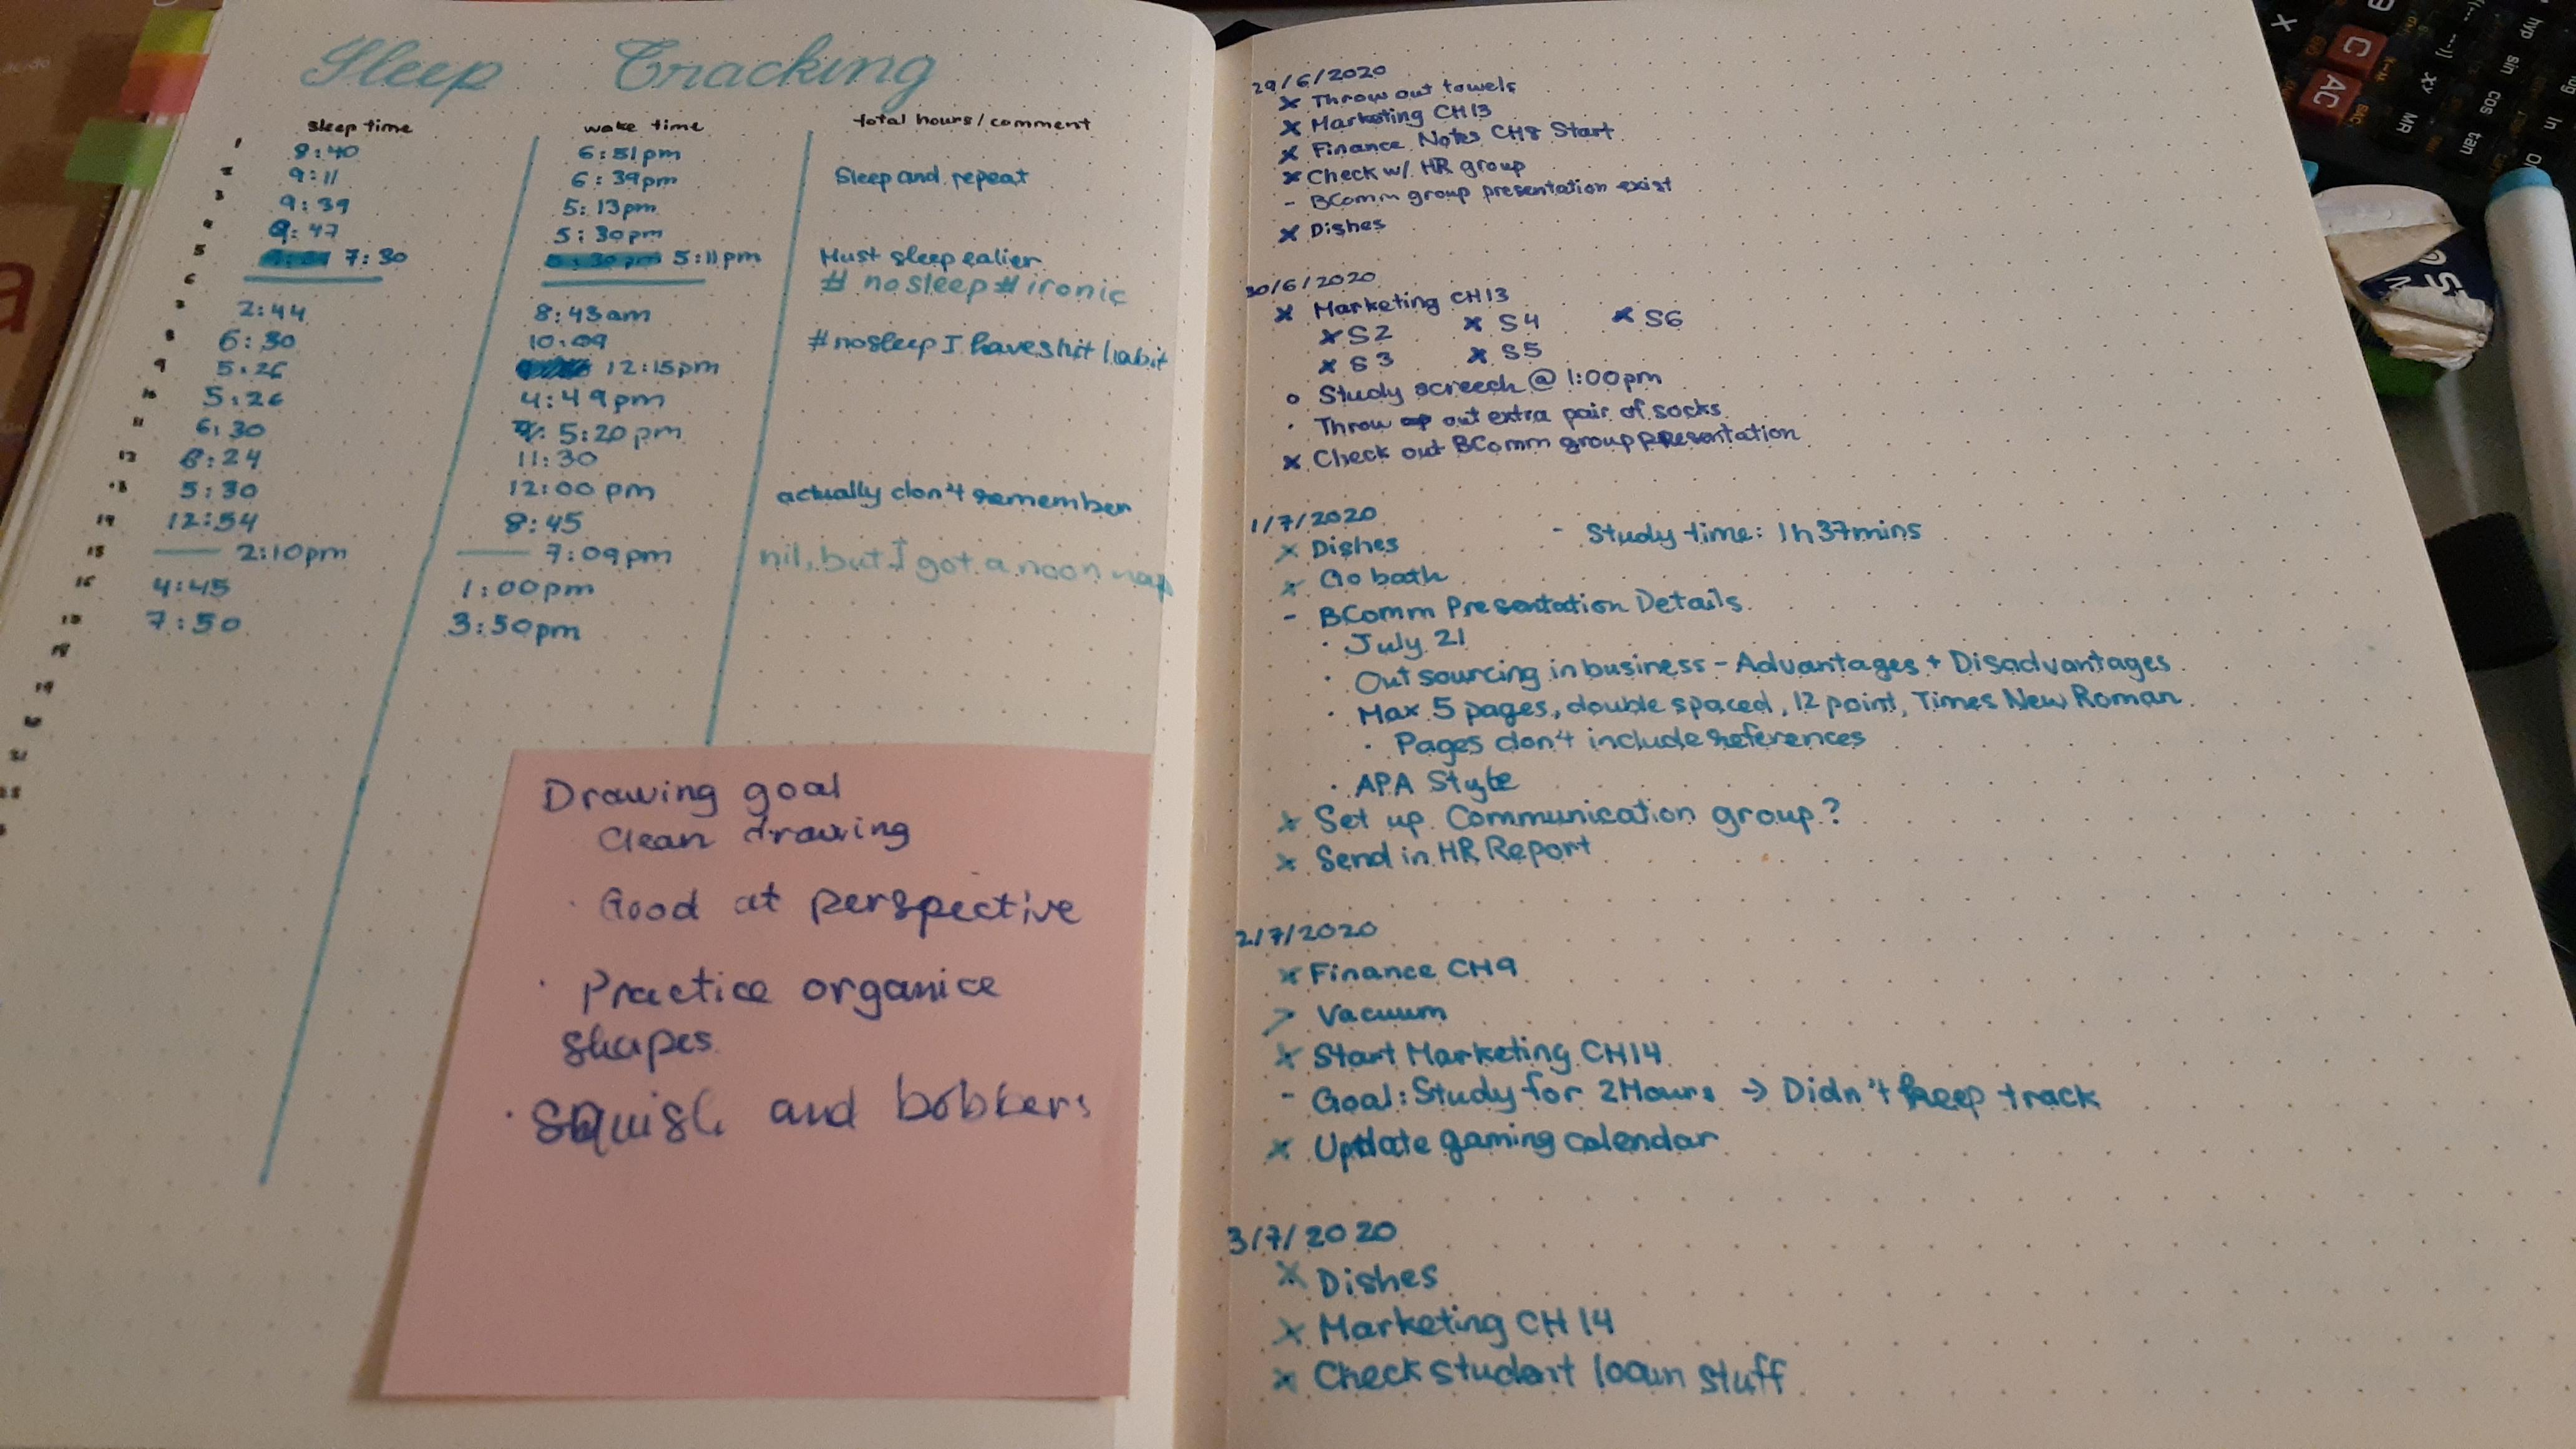 Sleep Tracking
sleep time wake time total hours/comment
1 8:40 6:51pm
2 9:11 6:39pm Sleep and repeat
3 9:39 5:13pm
4 9:47 5:30pm
5 7:30 5:11pm Must sleep ealier
6 # no sleep # ironic
2:44 8:43am
8 6:30 10:09 #nosleep I have shit habit
9 5:26 12:15pm
10 5:26 4:49pm
11 6:30 5:20pm
12 8:24 11:30
13 5:30 12:00 pm actually don't remember
14 12:54 8:45
15 2:10pm 7:09pm nil, but I got a noon nap
16 4:45 1:00pm
7:50 3:50pm
19
21
Drawing goal
Clean drawing
· Good at perspective
· Practice organice
shapes
· Squish and bobbers
29/6/2020
x Throw out towels
x Marketing CH13
x Finance Notes CH8 Start
x Check w/ HR group
- BComm group presentation exist
x Dishes
30/6/2020
x Marketing CH13
x S2 x S4 x S6
x S3 x S5
o Study screech @ 1:00pm
· Throw out extra pair of socks
x Check out BComm group presentation
1/7/2020
x Dishes - Study time: 1h 37mins
x Go bath
- BComm Presentation Details
· July 21
· Outsourcing in business - Advantages + Disadvantages
· Max 5 pages, double spaced, 12 point, Times New Roman
· Pages don't include references
· APA Style
x Set up Communication group?
x Send in HR Report
2/7/2020
x Finance CH9
> Vacuum
x Start Marketing CH14
- Goal: Study for 2 Hours → Didn't keep track
x Update gaming calendar
3/7/2020
x Dishes
x Marketing CH 14
x Check student loan stuff
C
AC
MR
hyp
sin
cos
tan
ln